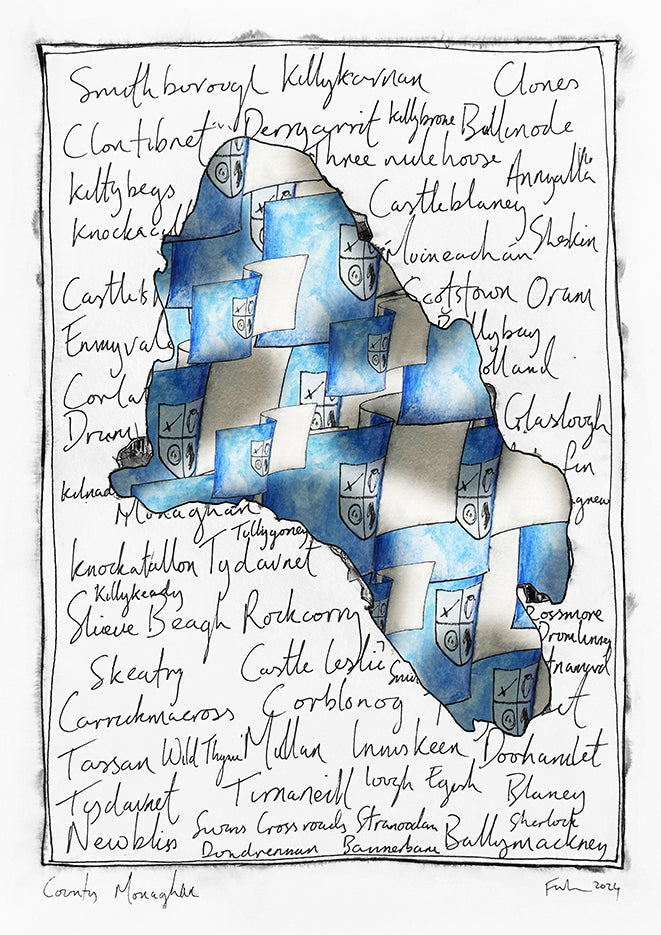 Smithborough Killykarnan Clones
Clontibret Derrygarrit Killybrone Ballinode
Three mile house Annyalla
Kiltybegs Castleblaney
Muineachán Sheskin
Scotstown Oram
Ballybay
Glaslough
Monaghan
Tullygoney
Knockatallon Tydavnet
Killykeady
Slieve Beagh Rockcorry
Rossmore
Drumlinney
Skeatry Castle Leslie
Carrickmacross Corblonog
Tassan Wild Thyme Mullan Inniskeen Doohamlet
Tydavnet Tirnaneill Lough Egish Blaney
Newbliss Swans Cross roads Stranoodan Sherlock
Dundrennan Bannerbane Ballymackney
County Monaghan
2024